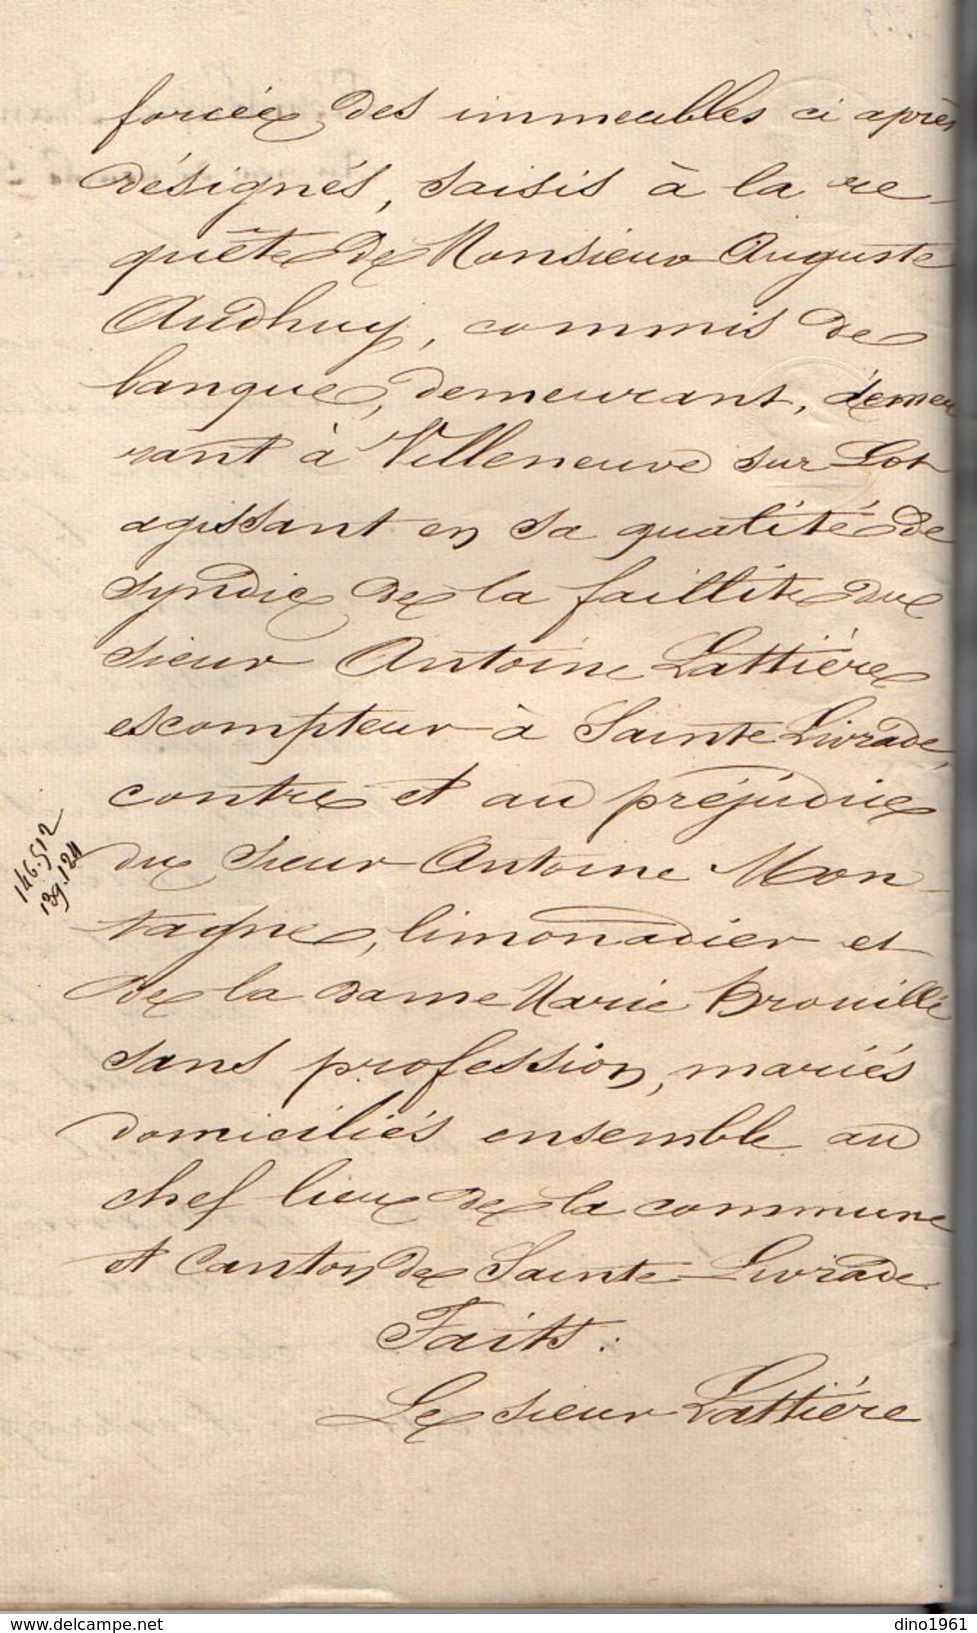 forcée des immeubles ci après
désignés, saisis à la re-
quête de Monsieur Auguste
Audhuy, commis de
banque, demeurant, demeu
rant à Villeneuve sur Lot
agissant en sa qualité de
syndic de la faillite du
sieur Antoine Lattière
escompteur à Sainte Livrade,
contre et au préjudice
146.512
139.124
du sieur Antoine Mon-
tagne, limonadier et
de la dame Marie Brouillé
sans profession, mariés
domiciliés ensemble au
chef lieu de la commune
et Canton de Sainte-Livrade.
Faits :
Le sieur Lattière
www.delcampe.net
dino1961